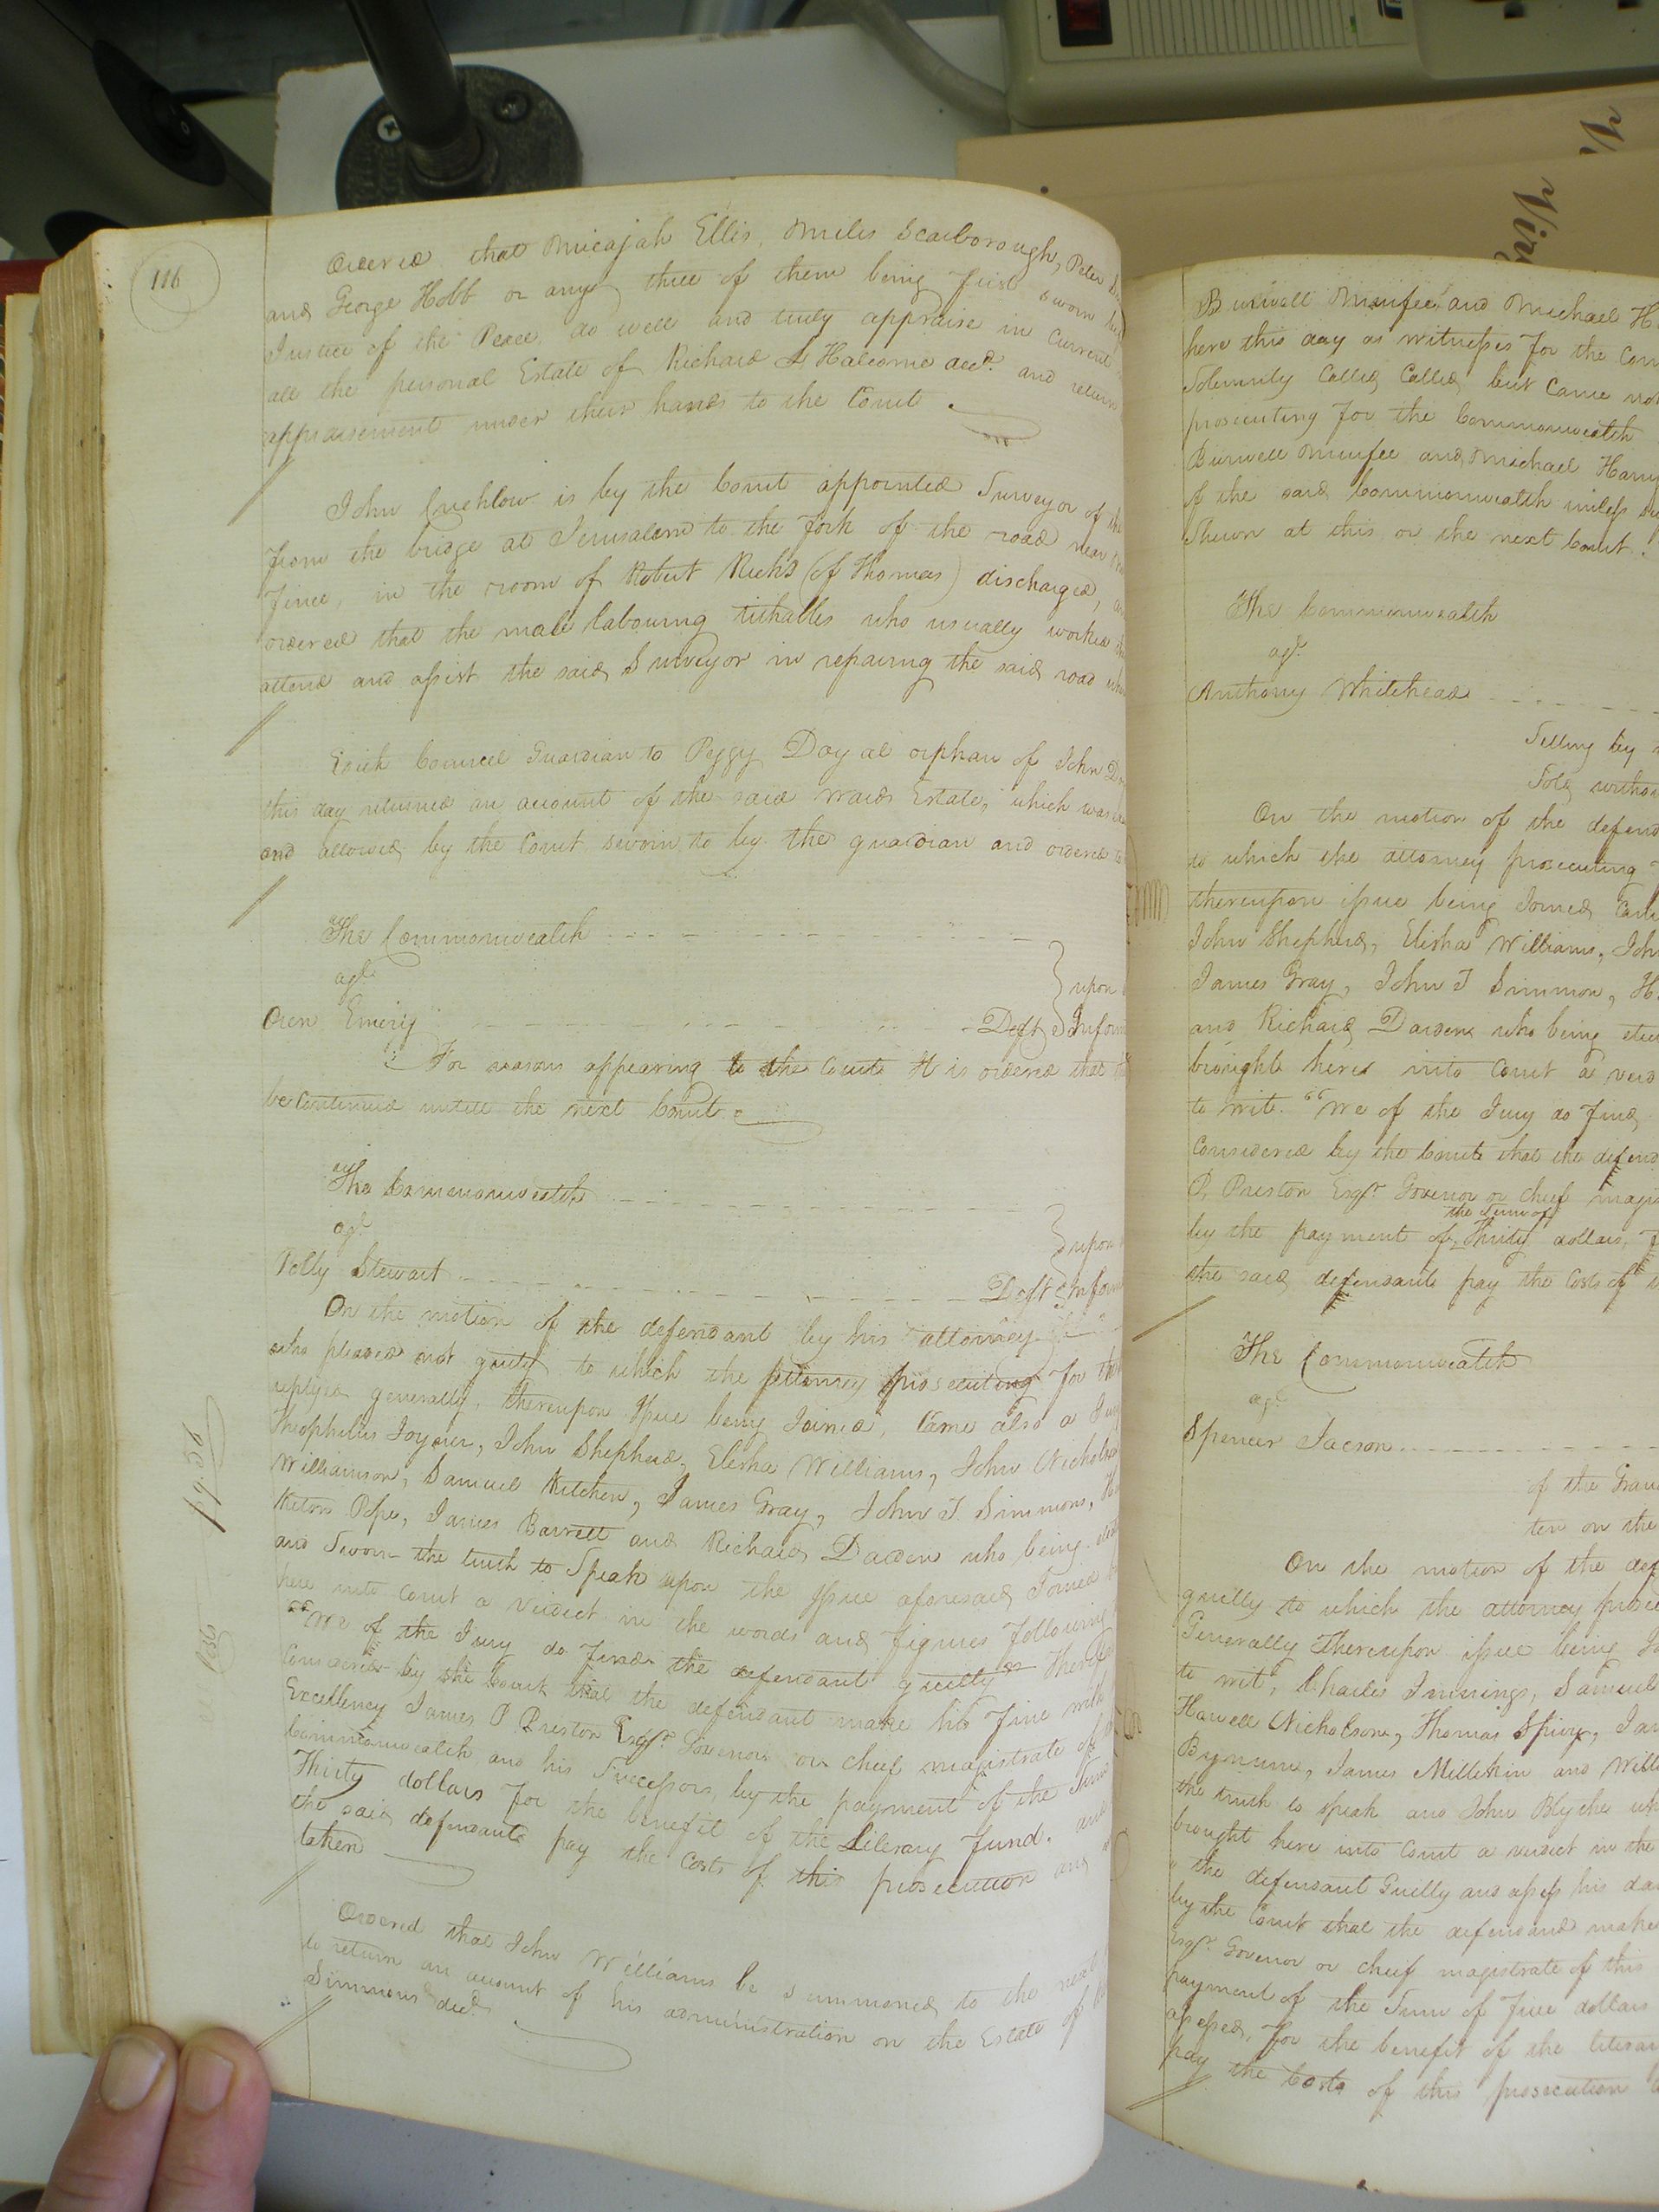 116
Ordered that Micajah Ellis, Miles Scarborough, Peter
and George Hobb or any three of them being first sworn
Justice of the Peace, do well and truly appraise in Current
all the personal Estate of Richard Halcome decd. and return
appraisement under their hands to the Court
John Crichlow is by the Court appointed Surveyor of the
from the bridge at Jerusalem to the fork of the road near
fence, in the room of Robert Ricks (of Thomas) discharged,
ordered that the male labouring tithables who usually worked
attend and assist the said Surveyor in repairing the said road
Council Guardian to Peggy Doyal orphan of John
this day returned an account of the said wards Estate, which was
and allowed by the Court sworn to by the guardian and ordered to
The Commonwealth
agt.
Emery Deft
upon
Inform
For reasons appearing to the Court It is ordered that
be Continued untill the next Court.
The Commonwealth
agt.
upon
Polly Stewart Deft Inform
On the motion of the defendant by his attorney
who pleaded not guilty to which the attorney prosecuting for the
replyed generally, thereupon Issue being Joined, Came also a Jury
Theophilus Joyner, John Shepherd, Elisha Williams, John Nicholson
Williamson, Samuel Kitchen, James Gray, John T. Simmons,
Pope, James Barrett and Richard Darden who being
and Sworn the truth to Speak upon the Issue aforesaid Joined
here into Court a verdict in the words and figures following
"We of the Jury do find the defendant guilty" Therefore
Considered by the Court that the defendant make his fine with
Excellency James P Preston Esqr. Governor or chief magistrate of
Commonwealth and his Successors, by the payment of the Sum
Thirty dollars for the benefit of the Literary fund. and
the said defendant pay the Costs of this prosecution and
taken
Ordered that John Williams be summoned to the next
to return an account of his administration on the Estate of
Simmons decd.
Burwell Minifee and Michael
here this day as witnesses for the Com
Solemnly Called, Called, but Came not
prosecuting for the Commonwealth
Burwell Minifee and Michael
of the said Commonwealth unless
Shewn at this or the next Court.
The Commonwealth
agt.
Anthony Whitehead
Selling by
Sold, witho
On the motion of the defend
to which the attorney prosecuting
thereupon issue being Joined,
John Shepherd, Elisha Williams, John
James Gray, John T Simmon,
and Richard Darden who being
brought here into Court a verd
to wit. "We of the Jury do find
Considered by the Court that the defend
P, Preston Esqr. Governor or chief magis
the sum of
by the payment of Thirty dollars,
the said defendant pay the Costs of
The Commonwealth
agt.
Spencer Jacson
of the Gran
ten on the
On the motion of the def
guilty to which the attorney prose
Generally Thereupon issue being Jo
to wit, Charles Innings, Samuel
Nicholson, Thomas Spivy,
Bynum, James Millikin and Will
the truth to speak and John Blythe
brought here into Court a verdict in the
"the defendant Guilty and assess his da
by the Court that the defendant make
Esqr. Governor or chief magistrate of this
payment of the Sum of five dollars
assessed, for the benefit of the literar
pay the Costs of this prosecution